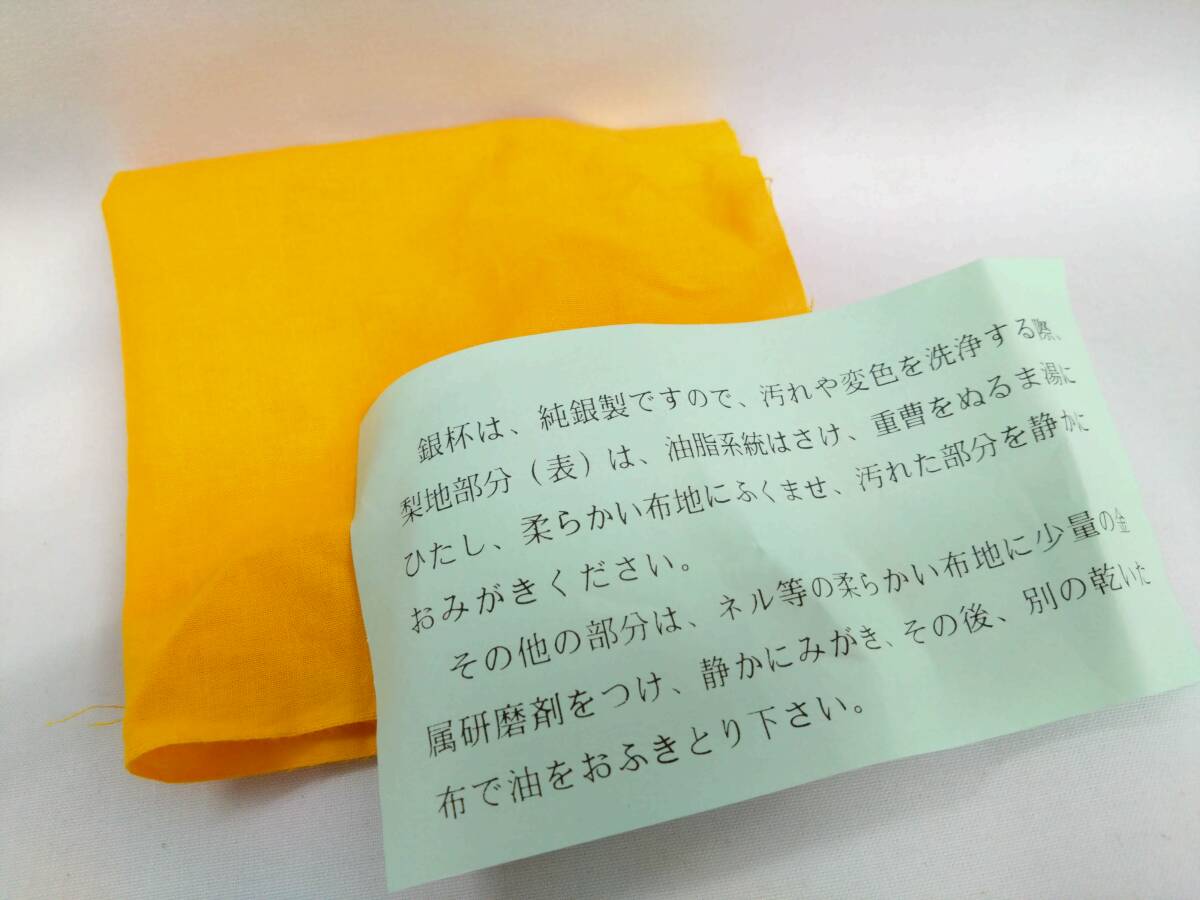 銀杯は、純銀製ですので、汚れや変色を洗浄する際、
梨地部分（表）は、油脂系統はさけ、重曹をぬるま湯に
ひたし、柔らかい布地にふくませ、汚れた部分を静かに
おみがきください。
その他の部分は、ネル等の柔らかい布地に少量の金
属研磨剤をつけ、静かにみがき、その後、別の乾いた
布で油をおふきとり下さい。